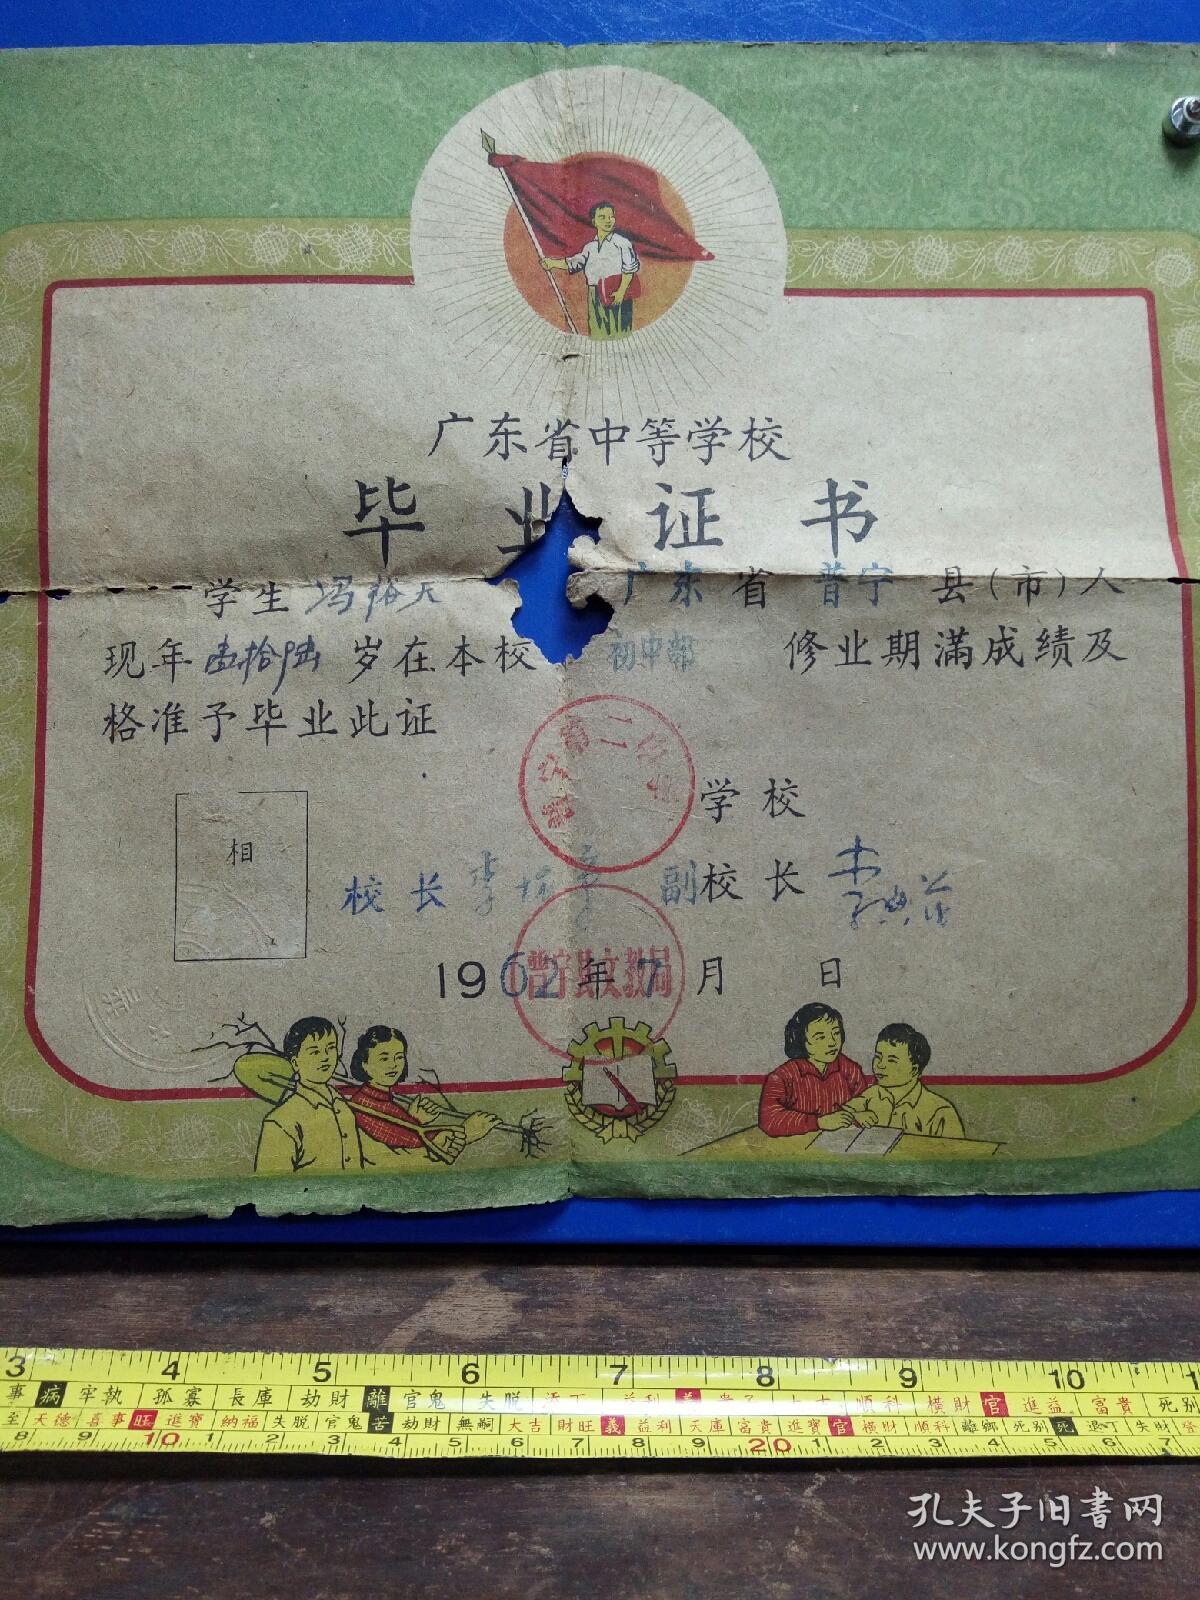 广东省中等学校
毕业证书
学生 冯裕天 广东省 普宁 县(市)人
现年 拾陆 岁在本校 初中部 修业期满成绩及
格准予毕业此证
学校
相
校长 李 副校长 李
普宁县文教局
1962年7月 日
3 4 5 6 7 8 9 10 1
事 病 牢執 孤寡 長庫 劫財 離 官鬼 失脱 益利 義 順科 橫財 官 進益 富貴 死别
至 天德 喜事 旺 進寶 納福 失脱 官鬼 苦 劫財 無嗣 大吉 財旺 義 益利 天庫 富貴 進寶 官 橫財 順科 離鄉 死别 死 退丁 失財
8 9 10 1 2 3 4 5 6 7 8 9 20 1 2 3 4 5 6 7
孔夫子旧書网
www.kongfz.com